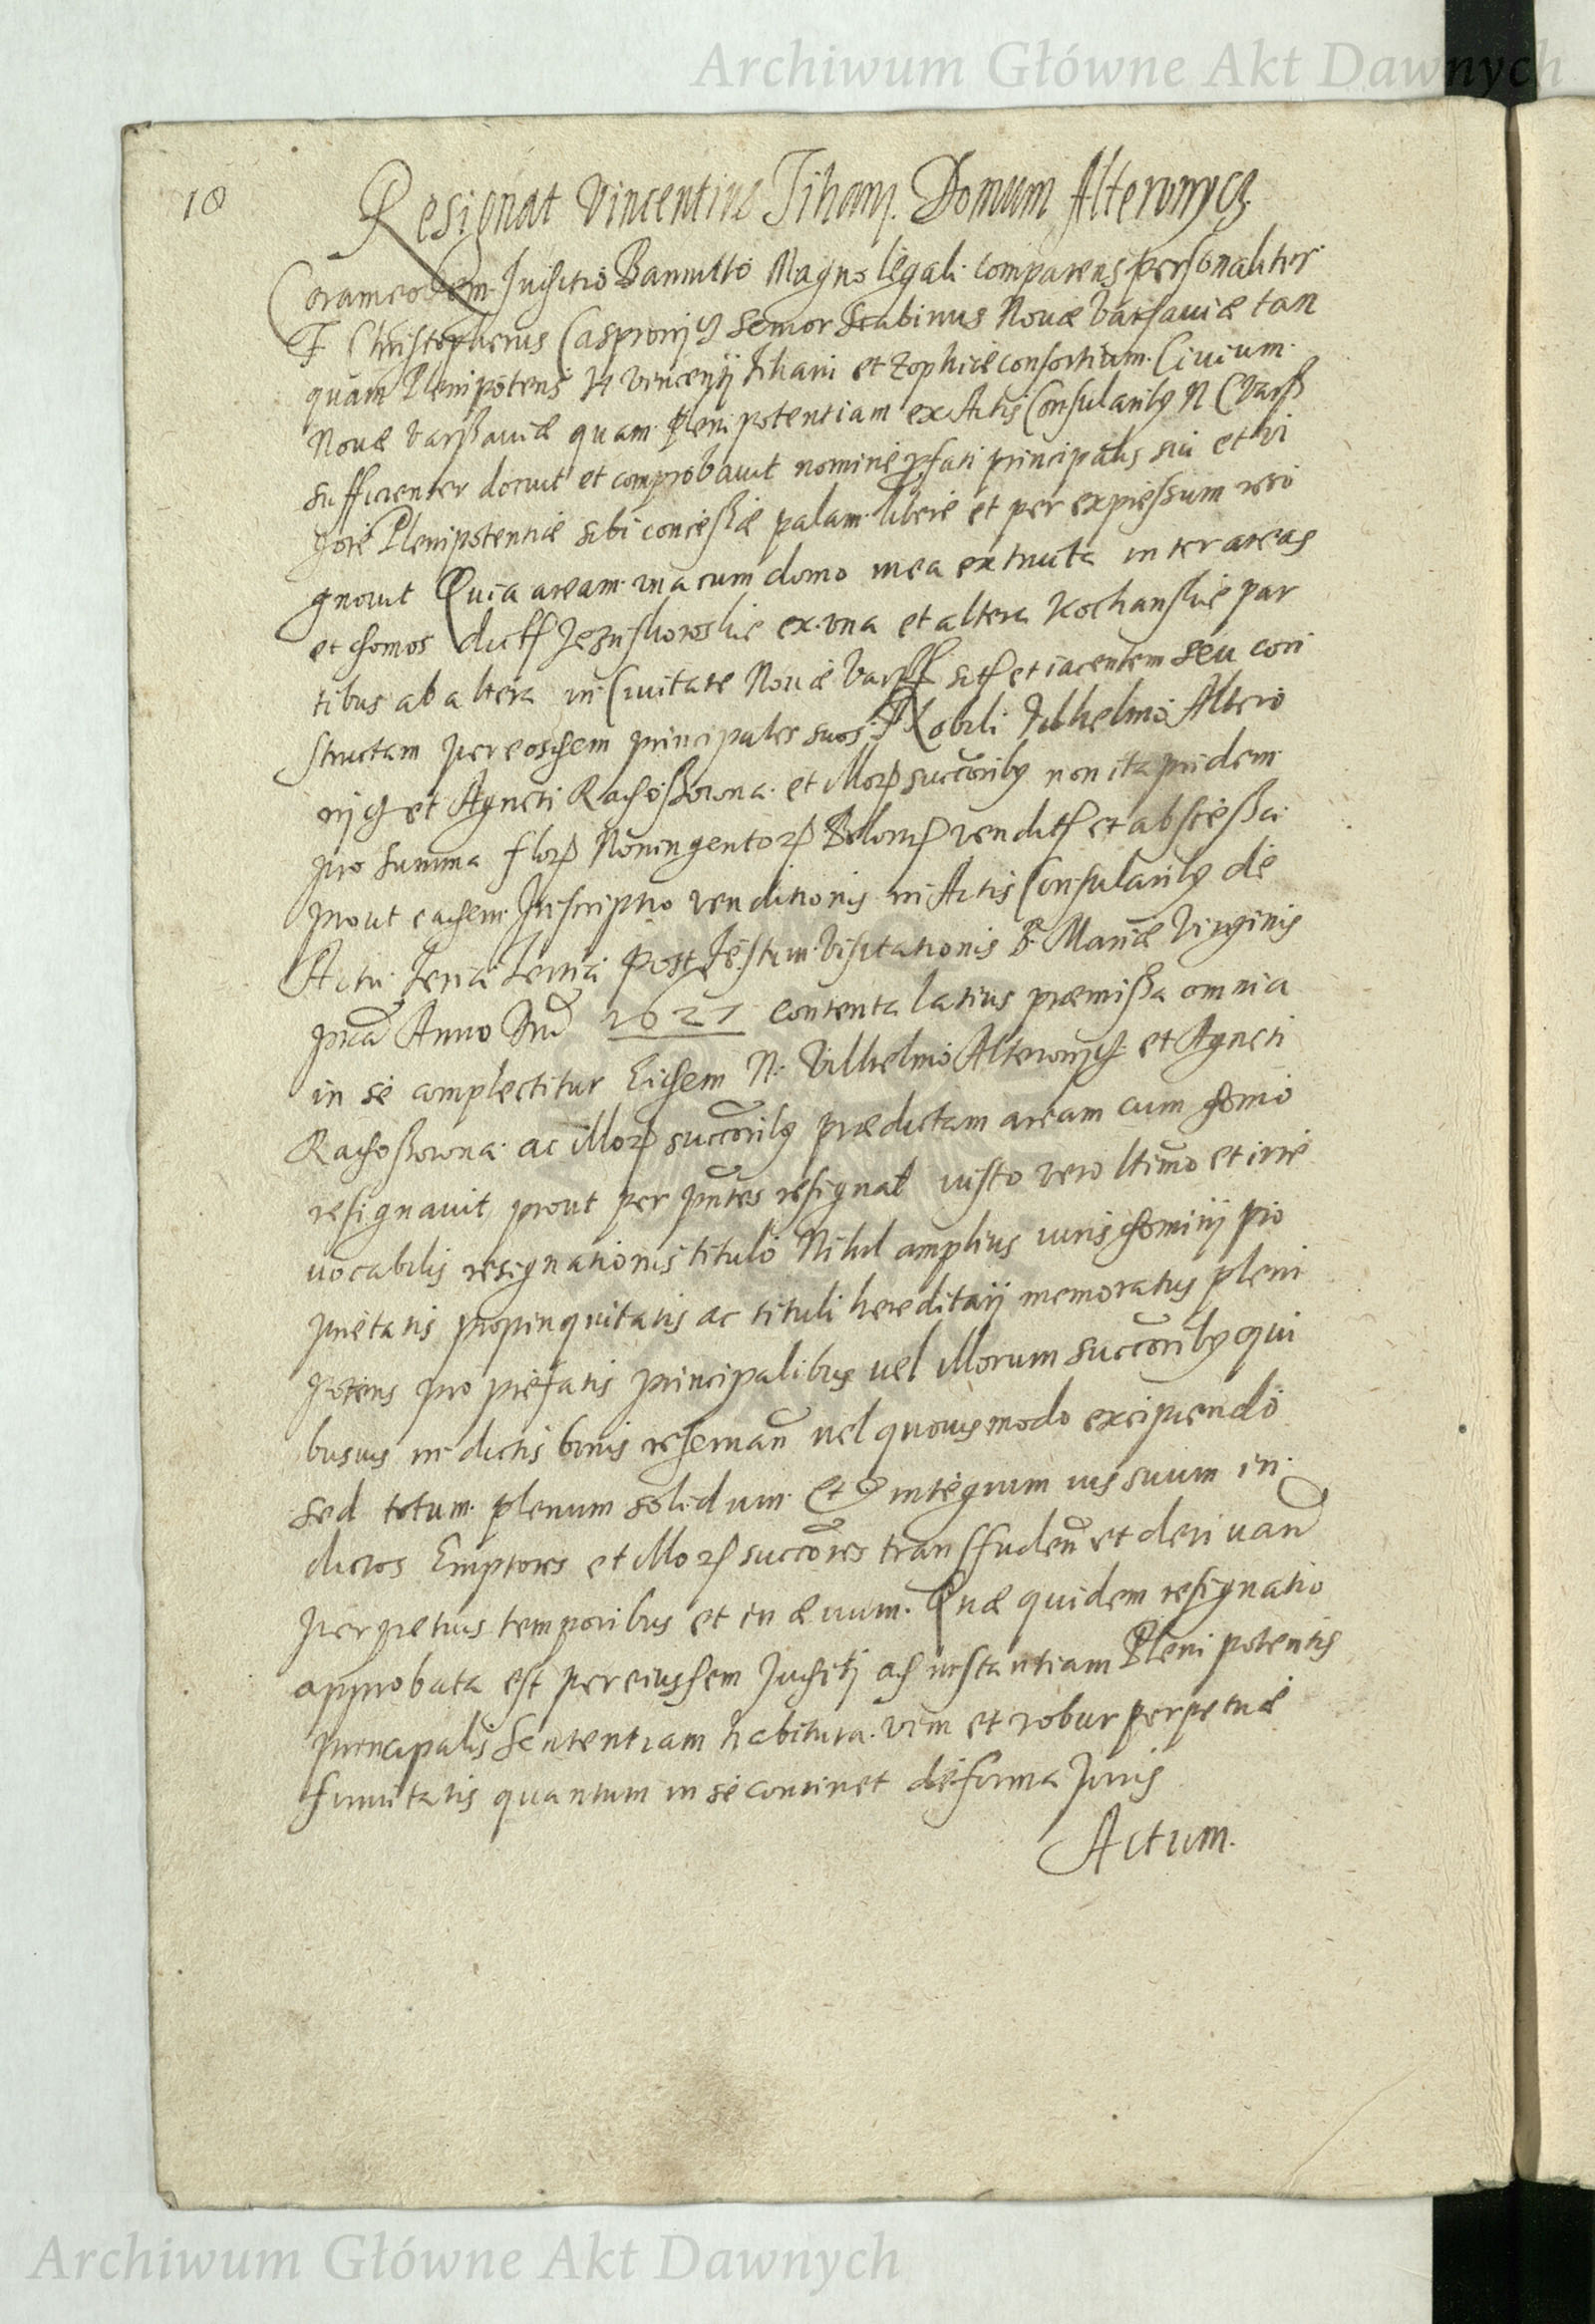 Archiwum Główne Akt Dawnych
18
Resignat Vincentius Tihanj. Domum Alteronycz.
Coram eodem Juditio Bannito Magno legali comparens personaliter
F. Christopherus Caspronij senior Scabinus Nouæ Varsauiæ tan
quam Plenipotens H Vincenti Tihani et Zophiæ consortium. Ciuium.
Nouæ Varßauiæ quam Plenipotentiam ex Actis Consularibꝫ N C Varß
sufficienter docuit et comprobauit nomine pfati principalis sui et vi
gore Plenipotentiæ sibi conceßæ palam libere et per expreßum reco
gnouit Quia aream una cum domo in ea extructa inter areas
et domos dict et altera Kochanskie par
tibus ab altera in Ciuitate Nouæ Varss sit et iacentem seu con
structam per eosdem principales suos Nobili Vilhelmo Altero
et Agneti Radoßowna et illoꝝ succoribꝫ non ita pridem
pro summa floꝝ Noningentoꝝ vendit et abscessa
prout eadem Inscriptio venditionis in Actis Consularibꝫ de
Actu Feria Tertia Post Festum Visitationis B. Mariæ Virginis
Anno Dnī 1621 contenta latius præmißa omnia
in se complectitur Eidem N. Vilhelmo et Agneti
Radoßowna ac illoꝝ succoribꝫ prædictam aream cum domo
resignauit prout per pntes resignat iusto vero ltimo et irre
uocabilis resignationis titulo Nihil amplius iuris dominij pro
prietatis propinquitatis ac tituli hereditarij memoratus pleni
potens pro prefatis principalibus uel illorum succoribꝫ qui
busuis in dictis bonis reseruan̄ uel quouis modo excipiendo
sed totum plenum solidum et integrum ius suum in
dictos Emptores et illoꝝ succores transfuden̄ et deriuan̄
perpetuis temporibus et in æuum. Quæ quidem resignatio
approbata est per eiusdem Juditij ad instantiam Plenipotentis
principalis Sententiam habitura vim et robur perpetuæ
firmitatis quantum in se continet de forma Juris
Actum.
Archiwum Główne Akt Dawnych